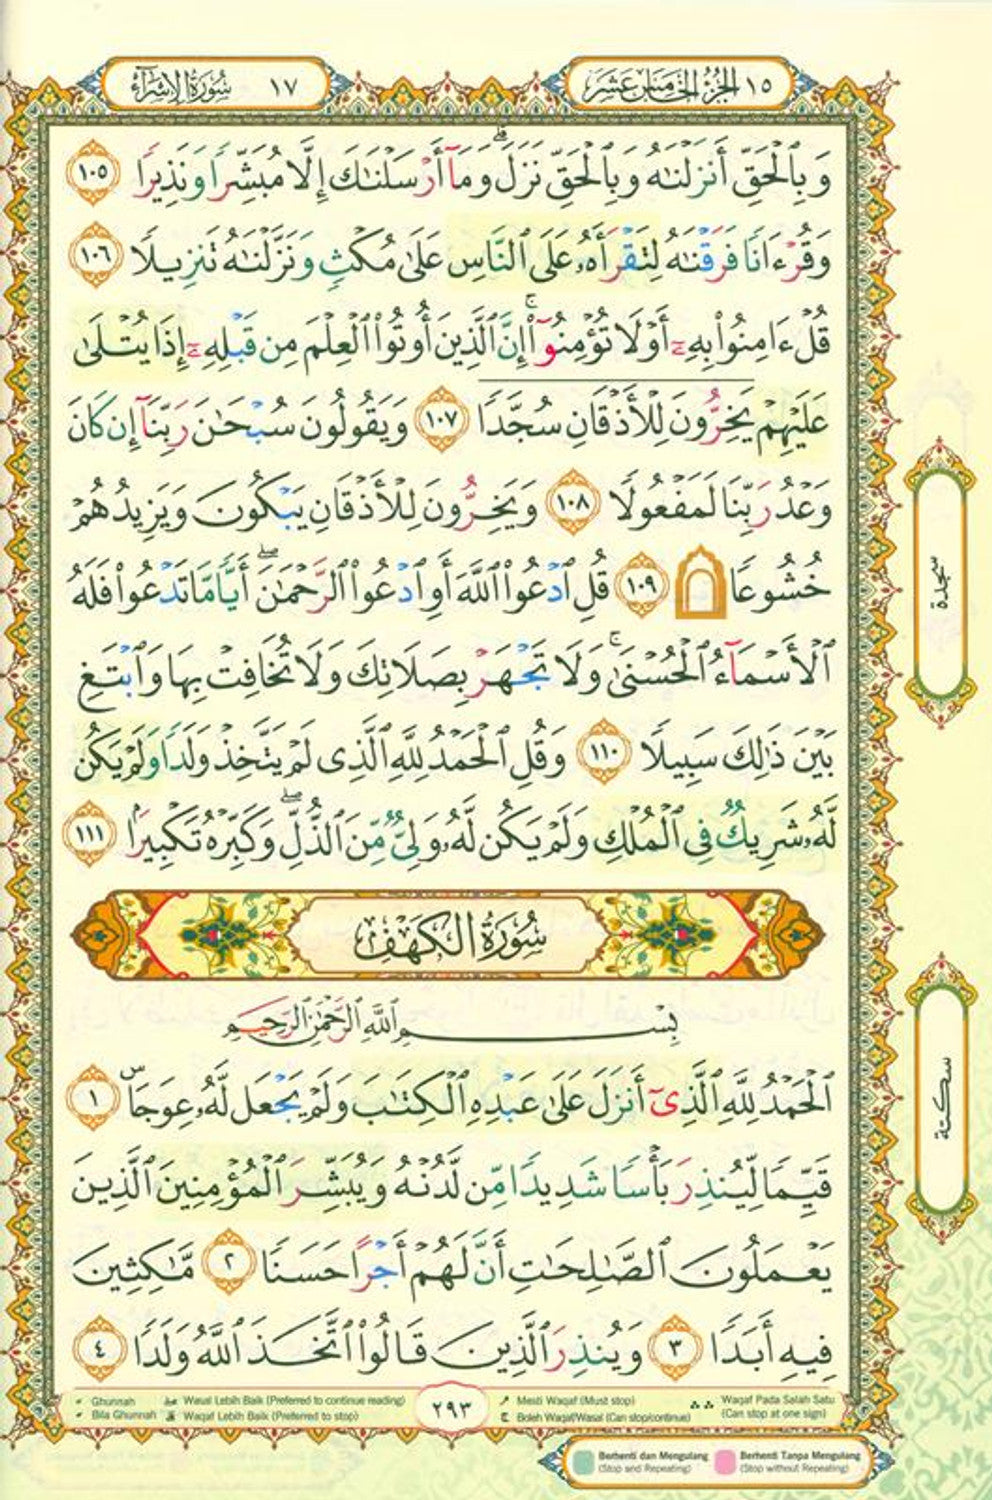 الجزء الخامس عشر ١٥
١٧ سورة الإسراء
وَبِٱلْحَقِّ أَنزَلْنَٰهُ وَبِٱلْحَقِّ نَزَلَ ۗ وَمَآ أَرْسَلْنَٰكَ إِلَّا مُبَشِّرًا وَنَذِيرًا ١٠٥
وَقُرْءَانًا فَرَقْنَٰهُ لِتَقْرَأَهُۥ عَلَى ٱلنَّاسِ عَلَىٰ مُكْثٍ وَنَزَّلْنَٰهُ تَنزِيلًا ١٠٦
قُلْ ءَامِنُوا۟ بِهِۦٓ أَوْ لَا تُؤْمِنُوٓا۟ ۚ إِنَّ ٱلَّذِينَ أُوتُوا۟ ٱلْعِلْمَ مِن قَبْلِهِۦٓ إِذَا يُتْلَىٰ
عَلَيْهِمْ يَخِرُّونَ لِلْأَذْقَانِ سُجَّدًا ١٠٧ وَيَقُولُونَ سُبْحَٰنَ رَبِّنَآ إِن كَانَ
وَعْدُ رَبِّنَا لَمَفْعُولًا ١٠٨ وَيَخِرُّونَ لِلْأَذْقَانِ يَبْكُونَ وَيَزِيدُهُمْ
خُشُوعًا ۩ ١٠٩ قُلِ ٱدْعُوا۟ ٱللَّهَ أَوِ ٱدْعُوا۟ ٱلرَّحْمَٰنَ ۖ أَيًّا مَّا تَدْعُوا۟ فَلَهُ
ٱلْأَسْمَآءُ ٱلْحُسْنَىٰ ۚ وَلَا تَجْهَرْ بِصَلَاتِكَ وَلَا تُخَافِتْ بِهَا وَٱبْتَغِ
بَيْنَ ذَٰلِكَ سَبِيلًا ١١٠ وَقُلِ ٱلْحَمْدُ لِلَّهِ ٱلَّذِى لَمْ يَتَّخِذْ وَلَدًا وَلَمْ يَكُن
لَّهُۥ شَرِيكٌ فِى ٱلْمُلْكِ وَلَمْ يَكُن لَّهُۥ وَلِىٌّ مِّنَ ٱلذُّلِّ ۖ وَكَبِّرْهُ تَكْبِيرًۢا ١١١
سُورَةُ الْكَهْفِ
بِسْمِ ٱللَّهِ ٱلرَّحْمَٰنِ ٱلرَّحِيمِ
ٱلْحَمْدُ لِلَّهِ ٱلَّذِىٓ أَنزَلَ عَلَىٰ عَبْدِهِ ٱلْكِتَٰبَ وَلَمْ يَجْعَل لَّهُۥ عِوَجَاۜ ١
قَيِّمًا لِّيُنذِرَ بَأْسًا شَدِيدًا مِّن لَّدُنْهُ وَيُبَشِّرَ ٱلْمُؤْمِنِينَ ٱلَّذِينَ
يَعْمَلُونَ ٱلصَّٰلِحَٰتِ أَنَّ لَهُمْ أَجْرًا حَسَنًا ٢ مَّٰكِثِينَ
فِيهِ أَبَدًا ٣ وَيُنذِرَ ٱلَّذِينَ قَالُوا۟ ٱتَّخَذَ ٱللَّهُ وَلَدًا ٤
سجدة
سكتة
Ghunnah
Bila Ghunnah
صلى Wasal Lebih Baik (Preferred to continue reading)
قلى Waqaf Lebih Baik (Preferred to stop)
٢٩٣
م Mesti Waqaf (Must stop)
ج Boleh Waqaf/Wasal (Can stop/continue)
Waqaf Pada Salah Satu
(Can stop at one sign)
Berhenti dan Mengulang
(Stop and Repeating)
Berhenti Tanpa Mengulang
(Stop without Repeating)